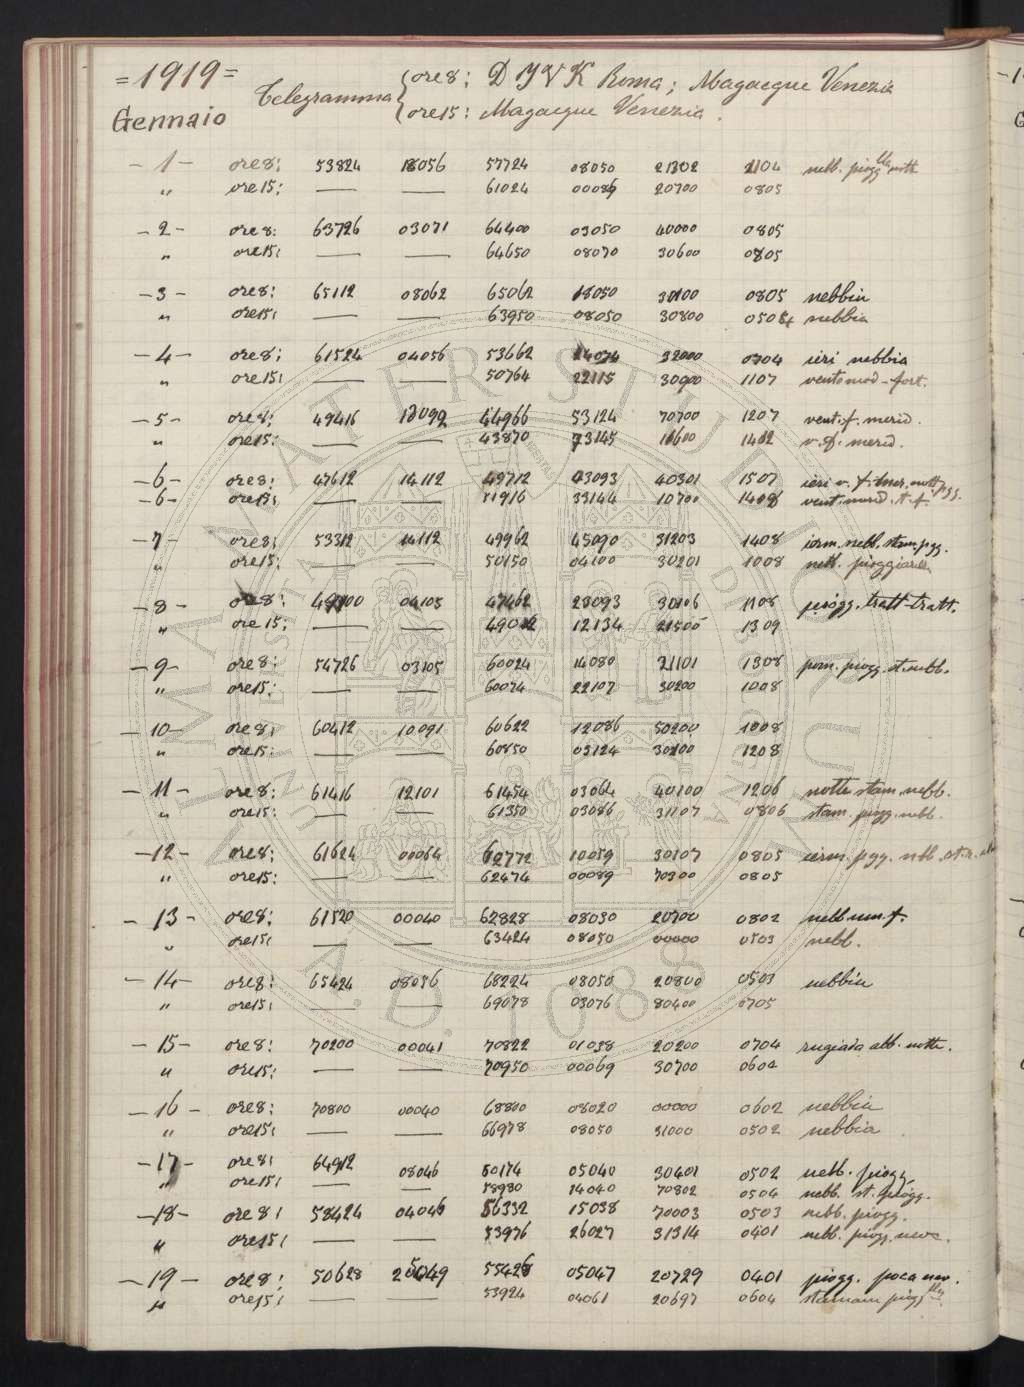 =1919= Telegramma { ore8: D I V K Roma; Magacque Venezia
Gennaio ore15: Magacque Venezia.
-1- ore8: 53824 18056 57724 08050 21302 2104 nebb. piogg lla nott
" ore15: — — 61024 00089 20700 0805
-2- ore8: 63726 03071 64400 03050 40000 0805
" ore15: — — 64650 08070 30600 0805
-3- ore8: 65112 08062 65062 18050 30100 0805 nebbia
" ore15: — — 63950 08050 30800 0505 nebbia
-4- ore8: 61524 04056 53662 24074 32000 0704 ieri nebbia
" ore15: — — 50764 22115 30900 1107 vento mod-fort.
-5- ore8: 49416 12099 44966 53124 70700 1207 vent.f. merid.
" ore15: — — 43870 73145 11600 1412 v.sf. merid.
-6- ore8: 47612 14112 49712 43093 40301 1507 ieri v. f. mer. nott pgg.
-6- ore15: — — 51916 33144 10700 1408 vent. merid. t. f.
-7- ore8: 53312 14112 49962 45090 51203 1408 ierm. nebb. stam. pgg.
" ore15: — — 50150 04100 30201 1008 nebb. pioggiarella
-8- ore8: 49100 04105 47462 28093 30106 1108 piogg. tratt-tratt.
" ore15: — — 49012 12134 21500 1309
-9- ore8: 54726 03105 60024 14080 31101 1308 pom. piogg. st. nebb.
" ore15: — — 60074 22107 30200 1008
-10- ore8: 60412 10091 60622 12086 50200 1008
" ore15: — — 60850 03124 30200 1208
-11- ore8: 61416 12101 61454 03064 40100 1206 notte stam. nebb.
" ore15: — — 61350 03086 31107 0806 stam. piogg. nebb.
-12- ore8: 61624 00064 62772 10059 30107 0805 ierm. pgg. nbl. st.
" ore15: — — 62474 00089 70300 0805
-13- ore8: 61520 00040 62828 08030 20700 0802 nebb. um. f.
" ore15: — — 63424 08050 00000 0503 nebb.
-14- ore8: 65424 08056 68224 08050 20800 0503 nebbia
" ore15: — — 69078 03076 80400 0705
-15- ore8: 70200 00041 70822 01038 20200 0704 rugiada abb. notte.
" ore15: — — 70950 00069 30700 0602
-16- ore8: 70800 00040 68800 08020 00000 0602 nebbia
" ore15: — — 66978 08050 31000 0502 nebbia
-17- ore8: 64912 08046 60174 05040 30401 0502 nebb. piogg.
" ore15: — — 58930 14040 70802 0504 nebb. st. piogg.
-18- ore8: 58424 04046 56332 15038 70003 0503 nebb. piogg.
" ore15: — — 53976 26027 31314 0401 nebb. piogg. neve.
-19- ore8: 50628 25049 55428 05047 20729 0401 piogg. poca nev.
" ore15: — — 53924 04061 20697 0604 stamani piogg lla